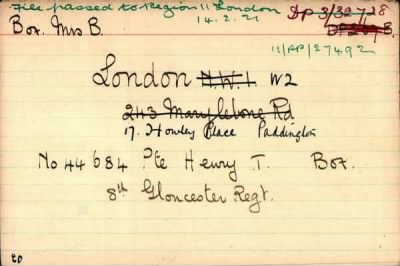 File passed to Region 11 London
14.2.21
DP 3/32728
Box. Mrs B.
11/PP/27492
London N.W.1 W2
243 Marylebone Rd
17. Howley Place Paddington
No 44684 Pte Henry T. Box.
8th Gloucester Regt.